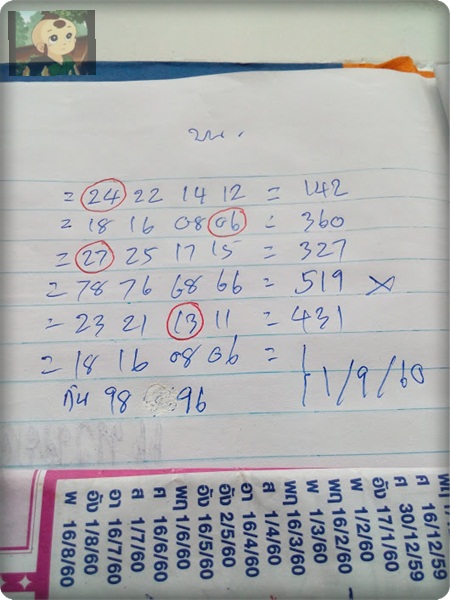 บน .
= 24 22 14 12 = 142
= 18 16 08 06 = 360
= 27 25 17 15 = 327
= 78 76 68 66 = 519 ×
= 23 21 13 11 = 431
= 18 16 08 06 =
กัน 98 96
1/9/60
ศ 16/12/59
ศ 30/12/59
อัง 17/1/60
พ 1/2/60
พฤ 16/2/60
พ 1/3/60
พฤ 16/3/60
ส 1/4/60
อา 16/4/60
อัง 2/5/60
อัง 16/5/60
พฤ 1/6/60
ศ 16/6/60
ส 1/7/60
อา 16/7/60
อัง 1/8/60
พ 16/8/60